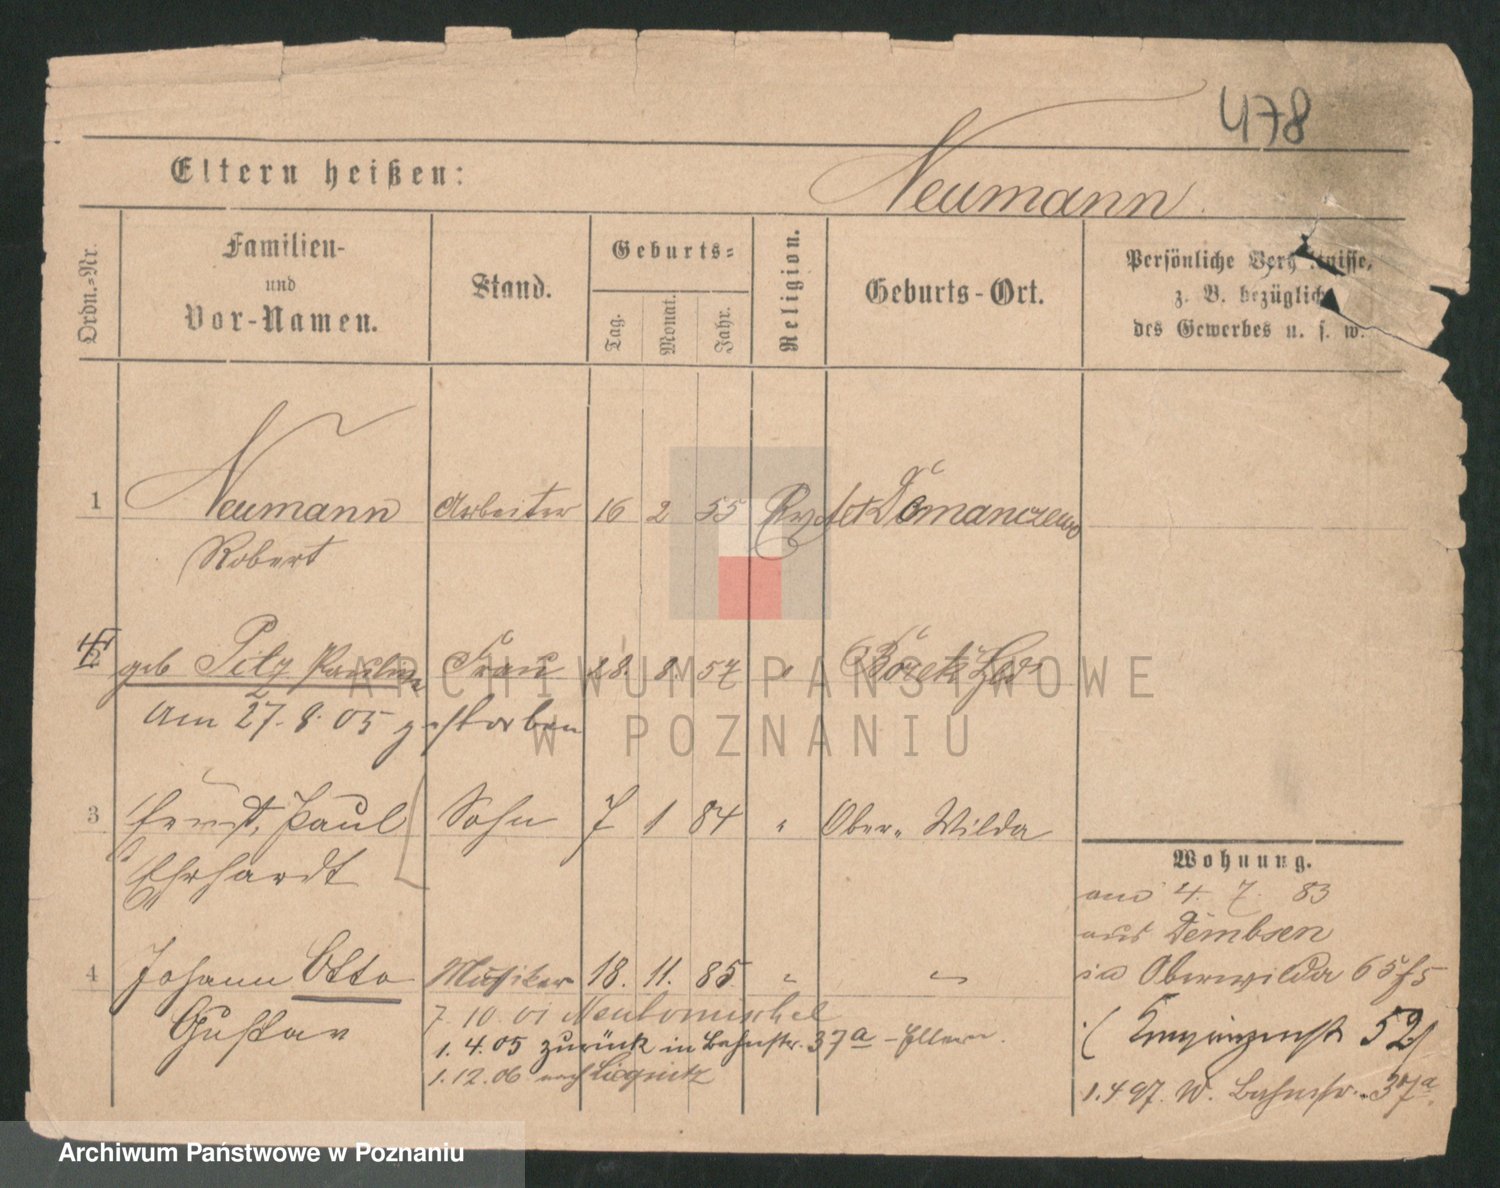 478
Eltern heißen:
Neumann
Ordn.-Nr.
Familien-
und
Vor-Namen.
Stand.
Geburts-
Tag.
Monat.
Jahr.
Religion.
Geburts-Ort.
Persönliche Verhältnisse,
z. B. bezüglich
des Gewerbes u. s. w.
1 Neumann Arbeiter 16 2 55 Domanczewo
Robert
2 geb Pilz Pauline Frau 28. 8. 57 "
am 27. 9. 05 gestorben
3 Ernst, Paul Sohn 7 1 84 " Ober-Wilda
Ehrhardt
Wohnung.
4. 7. 83
aus Dembsen
in Oberwilda 65
4 Johann Otto Musiker 18. 11. 85 " "
Gustav
7. 10. 01 Neutomischel
1. 4. 05 zurück in Bahnstr. 37a - Eltern.
1. 12. 06 nach Liegnitz
Kronprinzenstr 52
1. 4 97. W. Bahnstr. 37a.
ARCHIWUM PAŃSTWOWE
W POZNANIU
Archiwum Państwowe w Poznaniu